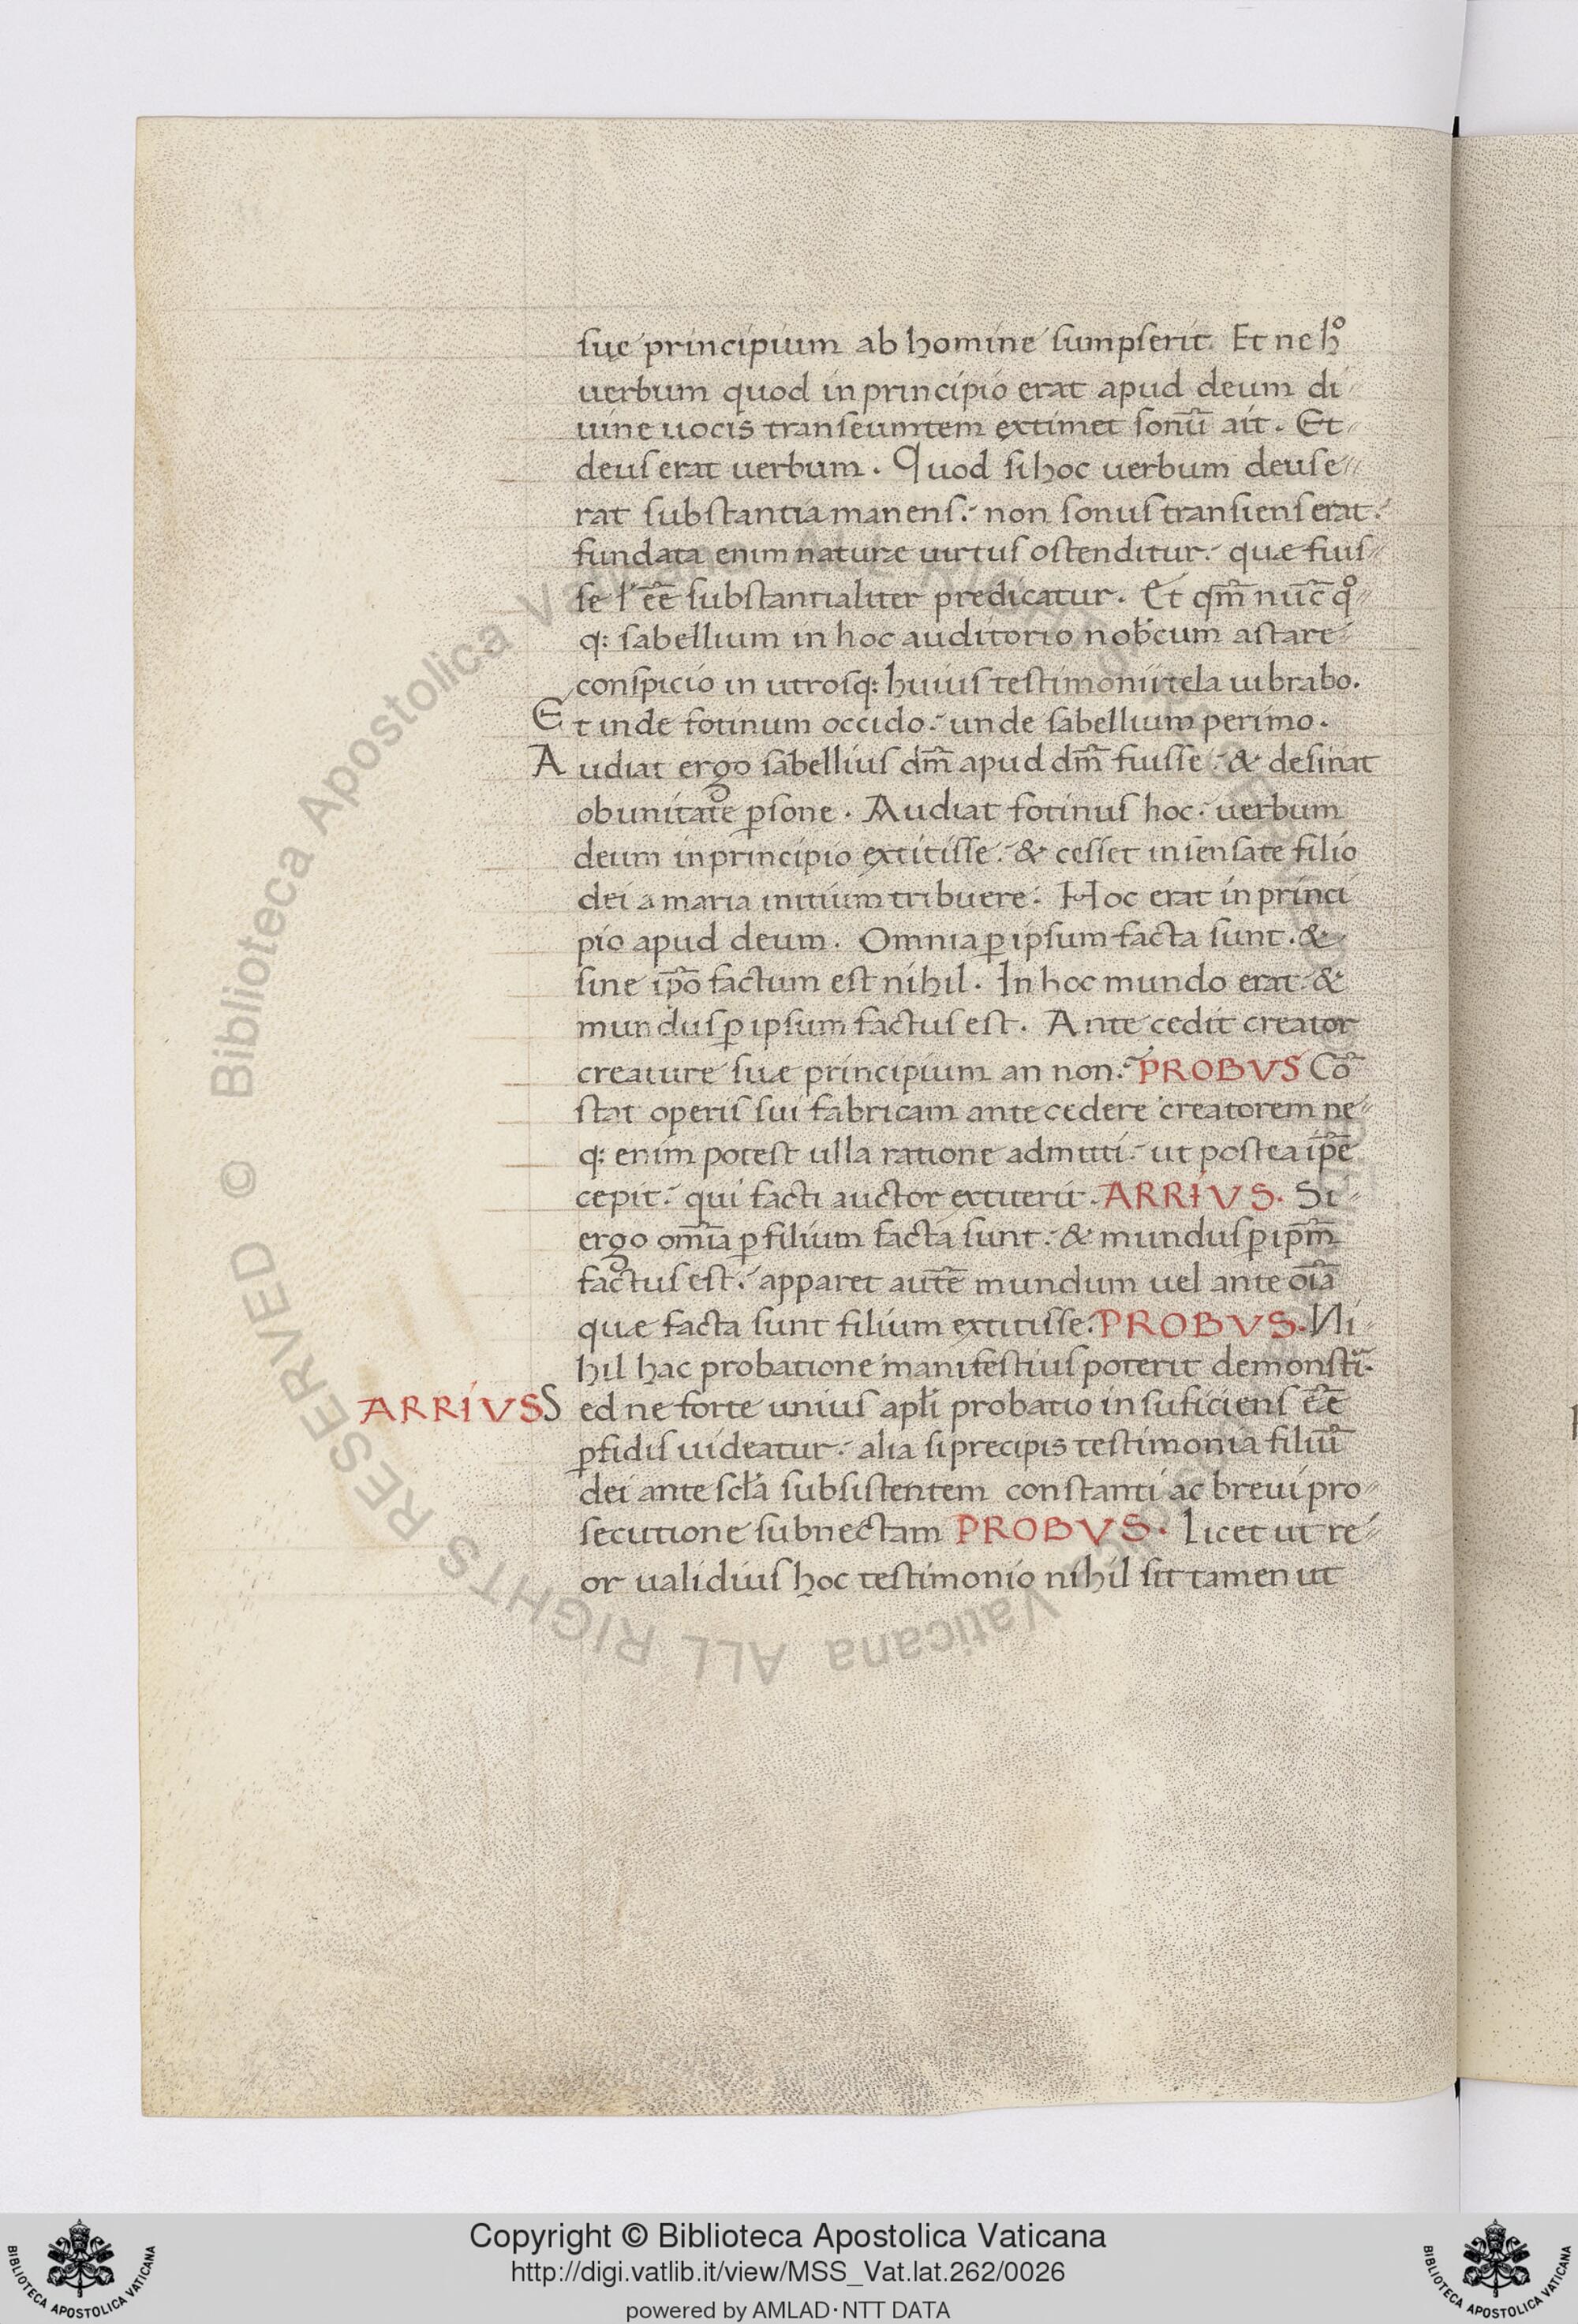 suę principium ab homine sumpserit. Et ne ħͦ
uerbum quod in principio erat apud deum di
uine uocis transeumtem extimet sonū ait. Et
deus erat uerbum. Quod si hoc uerbum deus e
rat substantia manens: non sonus transiens erat.
fundata enim naturæ uirtus ostenditur. quæ fuis
se l' eē substantialiter predicatur. Et qm̄ nūc qͦ
q: sabellium in hoc auditorio nob'cum astare
conspicio in utrosq: huius testimonii tela uibrabo.
Et inde fotinum occido. unde sabellium perimo.
Audiat ergo sabellius dm̄ apud dm̄ fuisse. & desinat
ob unitatē ꝑsone. Audiat fotinus hoc. uerbum
deum in principio extitisse. & cesset insensate filio
dei a maria initium tribuere. Hoc erat in princi
pio apud deum. Omnia ꝑ ipsum facta sunt. &
sine ip̄o factum est nihil. In hoc mundo erat &
mundus ꝑ ipsum factus est. Ante cedit creator
creature suæ principium an non. PROBVS Cō
stat operis sui fabricam ante cedere creatorem ne
q: enim potest ulla ratione admitti. ut postea ip̄e
cepit. qui facti auctor extiterit. ARRIVS. Si
ergo om̄ia ꝑ filium facta sunt. & mundus ꝑ ip̄m
factus est. apparet autē mundum uel ante oīa
quæ facta sunt filium extitisse. PROBVS. Ni
hil hac probatione manifestius poterit demonstri.
ARRIVS Sed ne forte unius apl̄i probatio insuficiens eē
ꝑfidis uideatur. alia si precipis testimonia filiū
dei ante scl̄a subsistentem constanti ac breui pro
secutione subnectam PROBVS. Licet ut re
or ualidius hoc testimonio nihil sit tamen ut
© Biblioteca Apostolica Vaticana ALL RIGHTS RESERVED
© Biblioteca Apostolica Vaticana ALL RIGHTS RESERVED
Copyright © Biblioteca Apostolica Vaticana
http://digi.vatlib.it/view/MSS_Vat.lat.262/0026
powered by AMLAD·NTT DATA
BIBLIOTECA APOSTOLICA VATICANA
BIBLIOTECA APOSTOLICA VATICANA